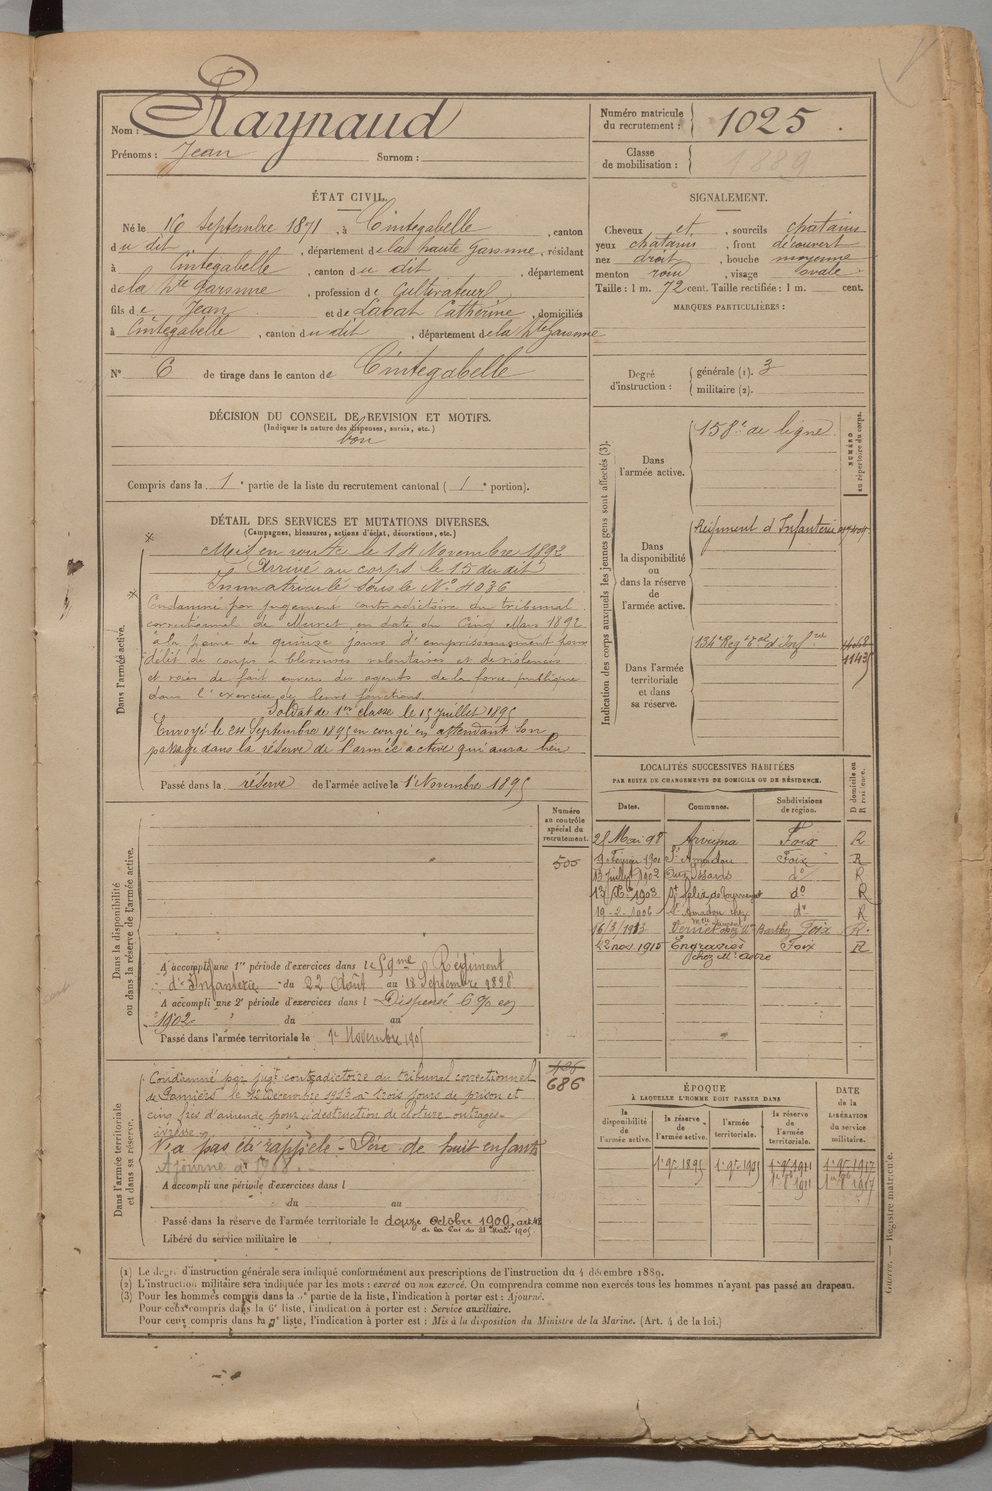 Nom : Raynaud
Prénoms : Jean Surnom :
Numéro matricule du recrutement : 1025
Classe de mobilisation : 1889
ÉTAT CIVIL.
Né le 16 Septembre 1871, à Cintegabelle, canton
du dit, département de la haute Garonne, résidant
à Cintegabelle, canton du dit, département
de la Hte Garonne, profession de Cultivateur
fils de Jean et de Labat Catherine, domiciliés
à Cintegabelle, canton du dit, département de la Hte Garonne
N° 6 de tirage dans le canton de Cintegabelle
SIGNALEMENT.
Cheveux et, sourcils chatains
yeux chatains, front découvert
nez droit, bouche moyenne
menton rond, visage ovale
Taille : 1 m. 72 cent. Taille rectifiée : 1 m. cent.
MARQUES PARTICULIÈRES :
Degré d'instruction :
générale (1). 3
militaire (2).
DÉCISION DU CONSEIL DE REVISION ET MOTIFS.
(Indiquer la nature des dispenses, sursis, etc.)
bon
Compris dans la 1e partie de la liste du recrutement cantonal (1e portion).
DÉTAIL DES SERVICES ET MUTATIONS DIVERSES.
(Campagnes, blessures, actions d'éclat, décorations, etc.)
Dans l'armée active.
Mis en route le 14 Novembre 1892
Arrivé au corps le 15 du dit
Immatriculé sous le N° 4036
Condamné par jugement contradictoire du tribunal
correctionnel de Muret en date du Cinq Mars 1892
à la peine de quinze jours d'emprisonnement pour
délit de coups & blessures volontaires et de violences
et voies de fait envers des agents de la force publique
dans l'exercice de leurs fonctions.
Soldat de 1re classe le 15 Juillet 1895
Envoyé le 24 Septembre 1895 en congé en attendant son
passage dans la réserve de l'armée active qui aura lieu
Passé dans la réserve de l'armée active le 1er Novembre 1895
Indication des corps auxquels les jeunes gens sont affectés (3).
NUMÉRO au répertoire du corps.
Dans l'armée active.
158e de ligne
Dans la disponibilité ou dans la réserve de l'armée active.
Régiment d'Infanterie
Dans l'armée territoriale et dans sa réserve.
134e Regt tal d'Infrie
11435
LOCALITÉS SUCCESSIVES HABITÉES
PAR SUITE DE CHANGEMENTS DE DOMICILE OU DE RÉSIDENCE.
Dates. Communes. Subdivisions de région. D domicile ou R résidence.
28 Mai 98 Arvigna Foix R
Février 1901 St Amadou Foix R
13 Juillet 1902 Issards do R
13 1903 St felix de do R
19-2-1906 St Amadou chez do R
16/3/1913 Vernet chez Foix R
22 nov. 1915 Engraviès Foix R
chez Mr
Dans la disponibilité ou dans la réserve de l'armée active.
Numéro au contrôle spécial du recrutement.
500
A accompli une 1re période d'exercices dans le 59me Régiment
d'Infanterie du 22 Août au 18 Septembre 1898
A accompli une 2e période d'exercices dans l Dispensé 6 % en
1902 du au
Passé dans l'armée territoriale le 1er Novembre 1905
Dans l'armée territoriale et dans sa réserve.
686
Condamné par jugt contradictoire du tribunal correctionnel
de Pamiers le 12 Décembre 1913 à trois jours de prison et
cinq frcs d'amende pour destruction de cloture - outrages -
ivresse
N'a pas été rappelé - Père de huit enfants
Ajourné à 1908.
A accompli une période d'exercices dans l
du au
Passé dans la réserve de l'armée territoriale le douze Octobre 1909, art 48
de la Loi du 21 Mars 1905
Libéré du service militaire le
ÉPOQUE
À LAQUELLE L'HOMME DOIT PASSER DANS
la disponibilité de l'armée active.
la réserve de l'armée active.
l'armée territoriale.
la réserve de l'armée territoriale.
DATE de la LIBÉRATION du service militaire.
1er 9bre 1895 1er 9bre 1905 1er 9bre 1911 1er 9bre 1917
(1) Le degré d'instruction générale sera indiqué conformément aux prescriptions de l'instruction du 4 décembre 1889.
(2) L'instruction militaire sera indiquée par les mots : exercé ou non exercé. On comprendra comme non exercés tous les hommes n'ayant pas passé au drapeau.
(3) Pour les hommes compris dans la e partie de la liste, l'indication à porter est : Ajourné.
Pour ceux compris dans la 6e liste, l'indication à porter est : Service auxiliaire.
Pour ceux compris dans la 7e liste, l'indication à porter est : Mis à la disposition du Ministre de la Marine. (Art. 4 de la loi.)
Guerre. — Registre matricule.